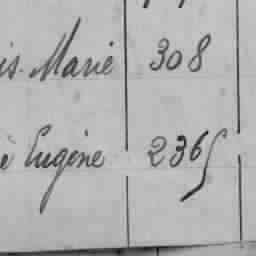 is-Marie 308
è Eugène 2365